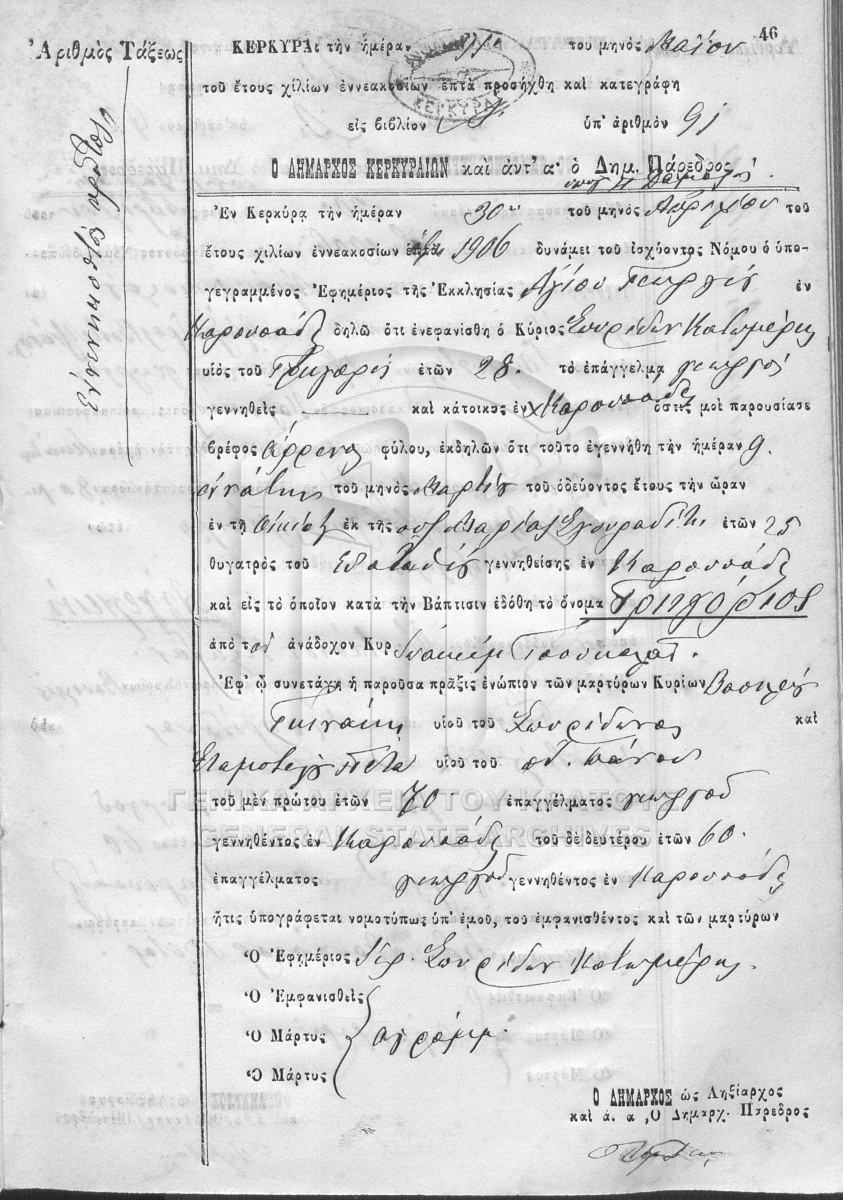 46
Ἀριθμὸς Τάξεως
Ἐννενηκοστὸν πρῶτον
ΚΕΡΚΥΡΑι τὴν ἡμέραν τοῦ μηνὸς Μαΐου
τοῦ ἔτους χιλίων ἐννεακοσίων ἑπτὰ προσήχθη καὶ κατεγράφη
εἰς βιβλίον ὑπ' ἀριθμὸν 91
ΚΕΡΚΥΡΑ
Ο ΔΗΜΑΡΧΟΣ ΚΕΡΚΥΡΑΙΩΝ καὶ ἀντ' α· ὁ Δημ. Πάρεδρος
Ἐν Κερκύρᾳ τὴν ἡμέραν 30ην τοῦ μηνὸς Ἀπριλίου τοῦ
ἔτους χιλίων ἐννεακοσίων ἑπτὰ 1906 δυνάμει τοῦ ἰσχύοντος Νόμου ὁ ὑπο-
γεγραμμένος Ἐφημέριος τῆς Ἐκκλησίας Ἁγίου Γεωργίου ἐν
Καρουσάδες δηλῶ ὅτι ἐνεφανίσθη ὁ Κύριος Σπυρίδων Κατωμέρης
υἱὸς τοῦ Γρηγορίου ἐτῶν 28. τὸ ἐπάγγελμα γεωργὸς
γεννηθεὶς καὶ κάτοικος ἐν Καρουσάδες ὅστις μοὶ παρουσίασε
βρέφος ἄρρενος φύλου, ἐκδηλῶν ὅτι τοῦτο ἐγεννήθη τὴν ἡμέραν 9.
ἐννάτην τοῦ μηνὸς Μαρτίου τοῦ ὁδεύοντος ἔτους τὴν ὥραν
ἐν τῇ οἰκίᾳ ἐκ τῆς συζ Μαρίας Σγουραδίτι ἐτῶν 25
θυγατρὸς τοῦ Εὐσταθίου γεννηθείσης ἐν Καρουσάδες
καὶ εἰς τὸ ὁποῖον κατὰ τὴν Βάπτισιν ἐδόθη τὸ ὄνομα Γρηγόριος
ἀπὸ τὸν ἀνάδοχον Κυρ Ἰωακεὶμ Τσουκαλᾶ.
Ἐφ' ᾧ συνετάχη ἡ παροῦσα πρᾶξις ἐνώπιον τῶν μαρτύρων Κυρίων Βασιλείου
Γκινάκη υἱοῦ τοῦ Σπυρίδωνος καὶ
Σταματέλου υἱοῦ τοῦ ποτ. Πάνου
τοῦ μὲν πρώτου ἐτῶν 70 ἐπαγγέλματος γεωργοῦ
ΓΕΝΙΚΑ ΑΡΧΕΙΑ ΤΟΥ ΚΡΑΤΟΥΣ
GENERAL STATE ARCHIVES
γεννηθέντος ἐν Καρουσάδες τοῦ δὲ δευτέρου ἐτῶν 60.
ἐπαγγέλματος γεωργοῦ γεννηθέντος ἐν Καρουσάδες
ἥτις ὑπογράφεται νομοτύπως ὑπ' ἐμοῦ, τοῦ ἐμφανισθέντος καὶ τῶν μαρτύρων
Ὁ Ἐφημέριος Ἱερ. Σπυρίδων Κατωμέρης.
Ὁ Ἐμφανισθεὶς
Ὁ Μάρτυς ἀγράμμ.
Ὁ Μάρτυς
Ο ΔΗΜΑΡΧΟΣ ὡς Ληξίαρχος
καὶ ἀ. α, Ὁ Δημαρχ. Πάρεδρος